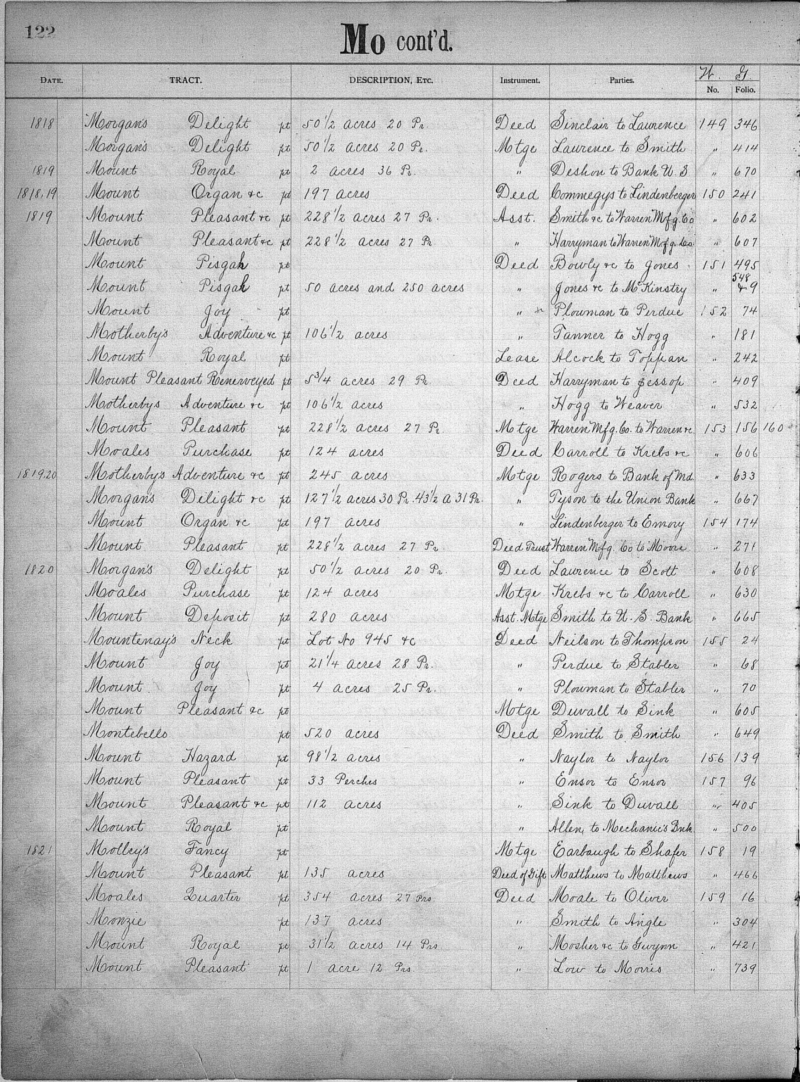 122
Mo cont'd.
W. G.
DATE. TRACT. DESCRIPTION, ETC. Instrument. Parties. No. Folio.
1818 Morgan's Delight pt 50 1/2 acres 20 Pr. Deed Sinclair to Lawrence 149 346
Morgan's Delight pt 50 1/2 acres 20 Pr. Mtge Lawrence to Smith " 414
1819 Mount Royal pt 2 acres 36 Pr. " Deshon to Bank U.S " 670
1818,19 Mount Organ &c pt 197 acres Deed Commegys to Lindenberger 150 241
1819 Mount Pleasant &c pt 228 1/2 acres 27 Pr. Asst. Smith &c to Warren Mfg. Co " 602
Mount Pleasant &c pt 228 1/2 acres 27 Pr " Harryman to Warren Mfg. Co. " 607
Mount Pisgah pt Deed Bowly &c to Jones 151 495
Mount Pisgah pt 50 acres and 250 acres " Jones &c to McKinstry " 548 & 9
Mount Joy pt " Plowman to Perdue 152 74
Motherby's Adventure &c pt 106 1/2 acres " Tanner to Hogg " 181
Mount Royal pt Lease Alcock to Toppan " 242
Mount Pleasant Resurveyed pt 5 3/4 acres 29 Pr Deed Harryman to Jessop " 409
Motherbys Adventure &c pt 106 1/2 acres " Hogg to Weaver " 532
Mount Pleasant pt 228 1/2 acres 27 Pr Mtge Warren Mfg. Co. to Warren &c 153 156 160
Moales Purchase pt 124 acres Deed Carroll to Krebs &c " 606
1819.20 Motherby's Adventure &c pt 245 acres Mtge Rogers to Bank of Md " 633
Morgan's Delight &c pt 127 1/2 acres 30 Pr. 43 1/2 a 31 Pr. " Tyson to the Union Bank " 667
Mount Organ &c pt 197 acres " Lindenberger to Emory 154 174
Mount Pleasant pt 228 1/2 acres 27 Pr Deed Trust Warren Mfg. Co to Moore " 271
1820 Morgan's Delight pt 50 1/2 acres 20 Pr. Deed Lawrence to Scott " 608
Moales Purchase pt 124 acres Mtge Krebs &c to Carroll " 630
Mount Deposit pt 280 acres Asst Mtge Smith to U.S. Bank " 665
Mountenay's Neck pt Lot No 945 &c Deed Neilson to Thompson 155 24
Mount Joy pt 21 1/4 acres 28 Pr. " Perdue to Stabler " 68
Mount Joy pt 4 acres 25 Pr. " Plowman to Stabler " 70
Mount Pleasant &c pt Mtge Duvall to Sink " 605
Montebello pt 520 acres Deed Smith to Smith " 649
Mount Hazard pt 98 1/2 acres " Naylor to Naylor 156 139
Mount Pleasant pt 33 Perches " Ensor to Ensor 157 96
Mount Pleasant &c pt 112 acres " Sink to Duvall " 405
Mount Royal pt " Allen, to Mechanic's Bnk " 500
1821 Molley's Fancy pt Mtge Earbaugh to Shafer 158 19
Mount Pleasant pt 135 acres Deed of Gift Matthews to Matthews " 466
Moales Quarter pt 354 acres 27 Prs Deed Moale to Oliver 159 16
Monzie pt 137 acres " Smith to Angle " 304
Mount Royal pt 31 1/2 acres 14 Prs " Mosher &c to Gwynn " 421
Mount Pleasant pt 1 acre 12 Prs " Low to Morris " 739